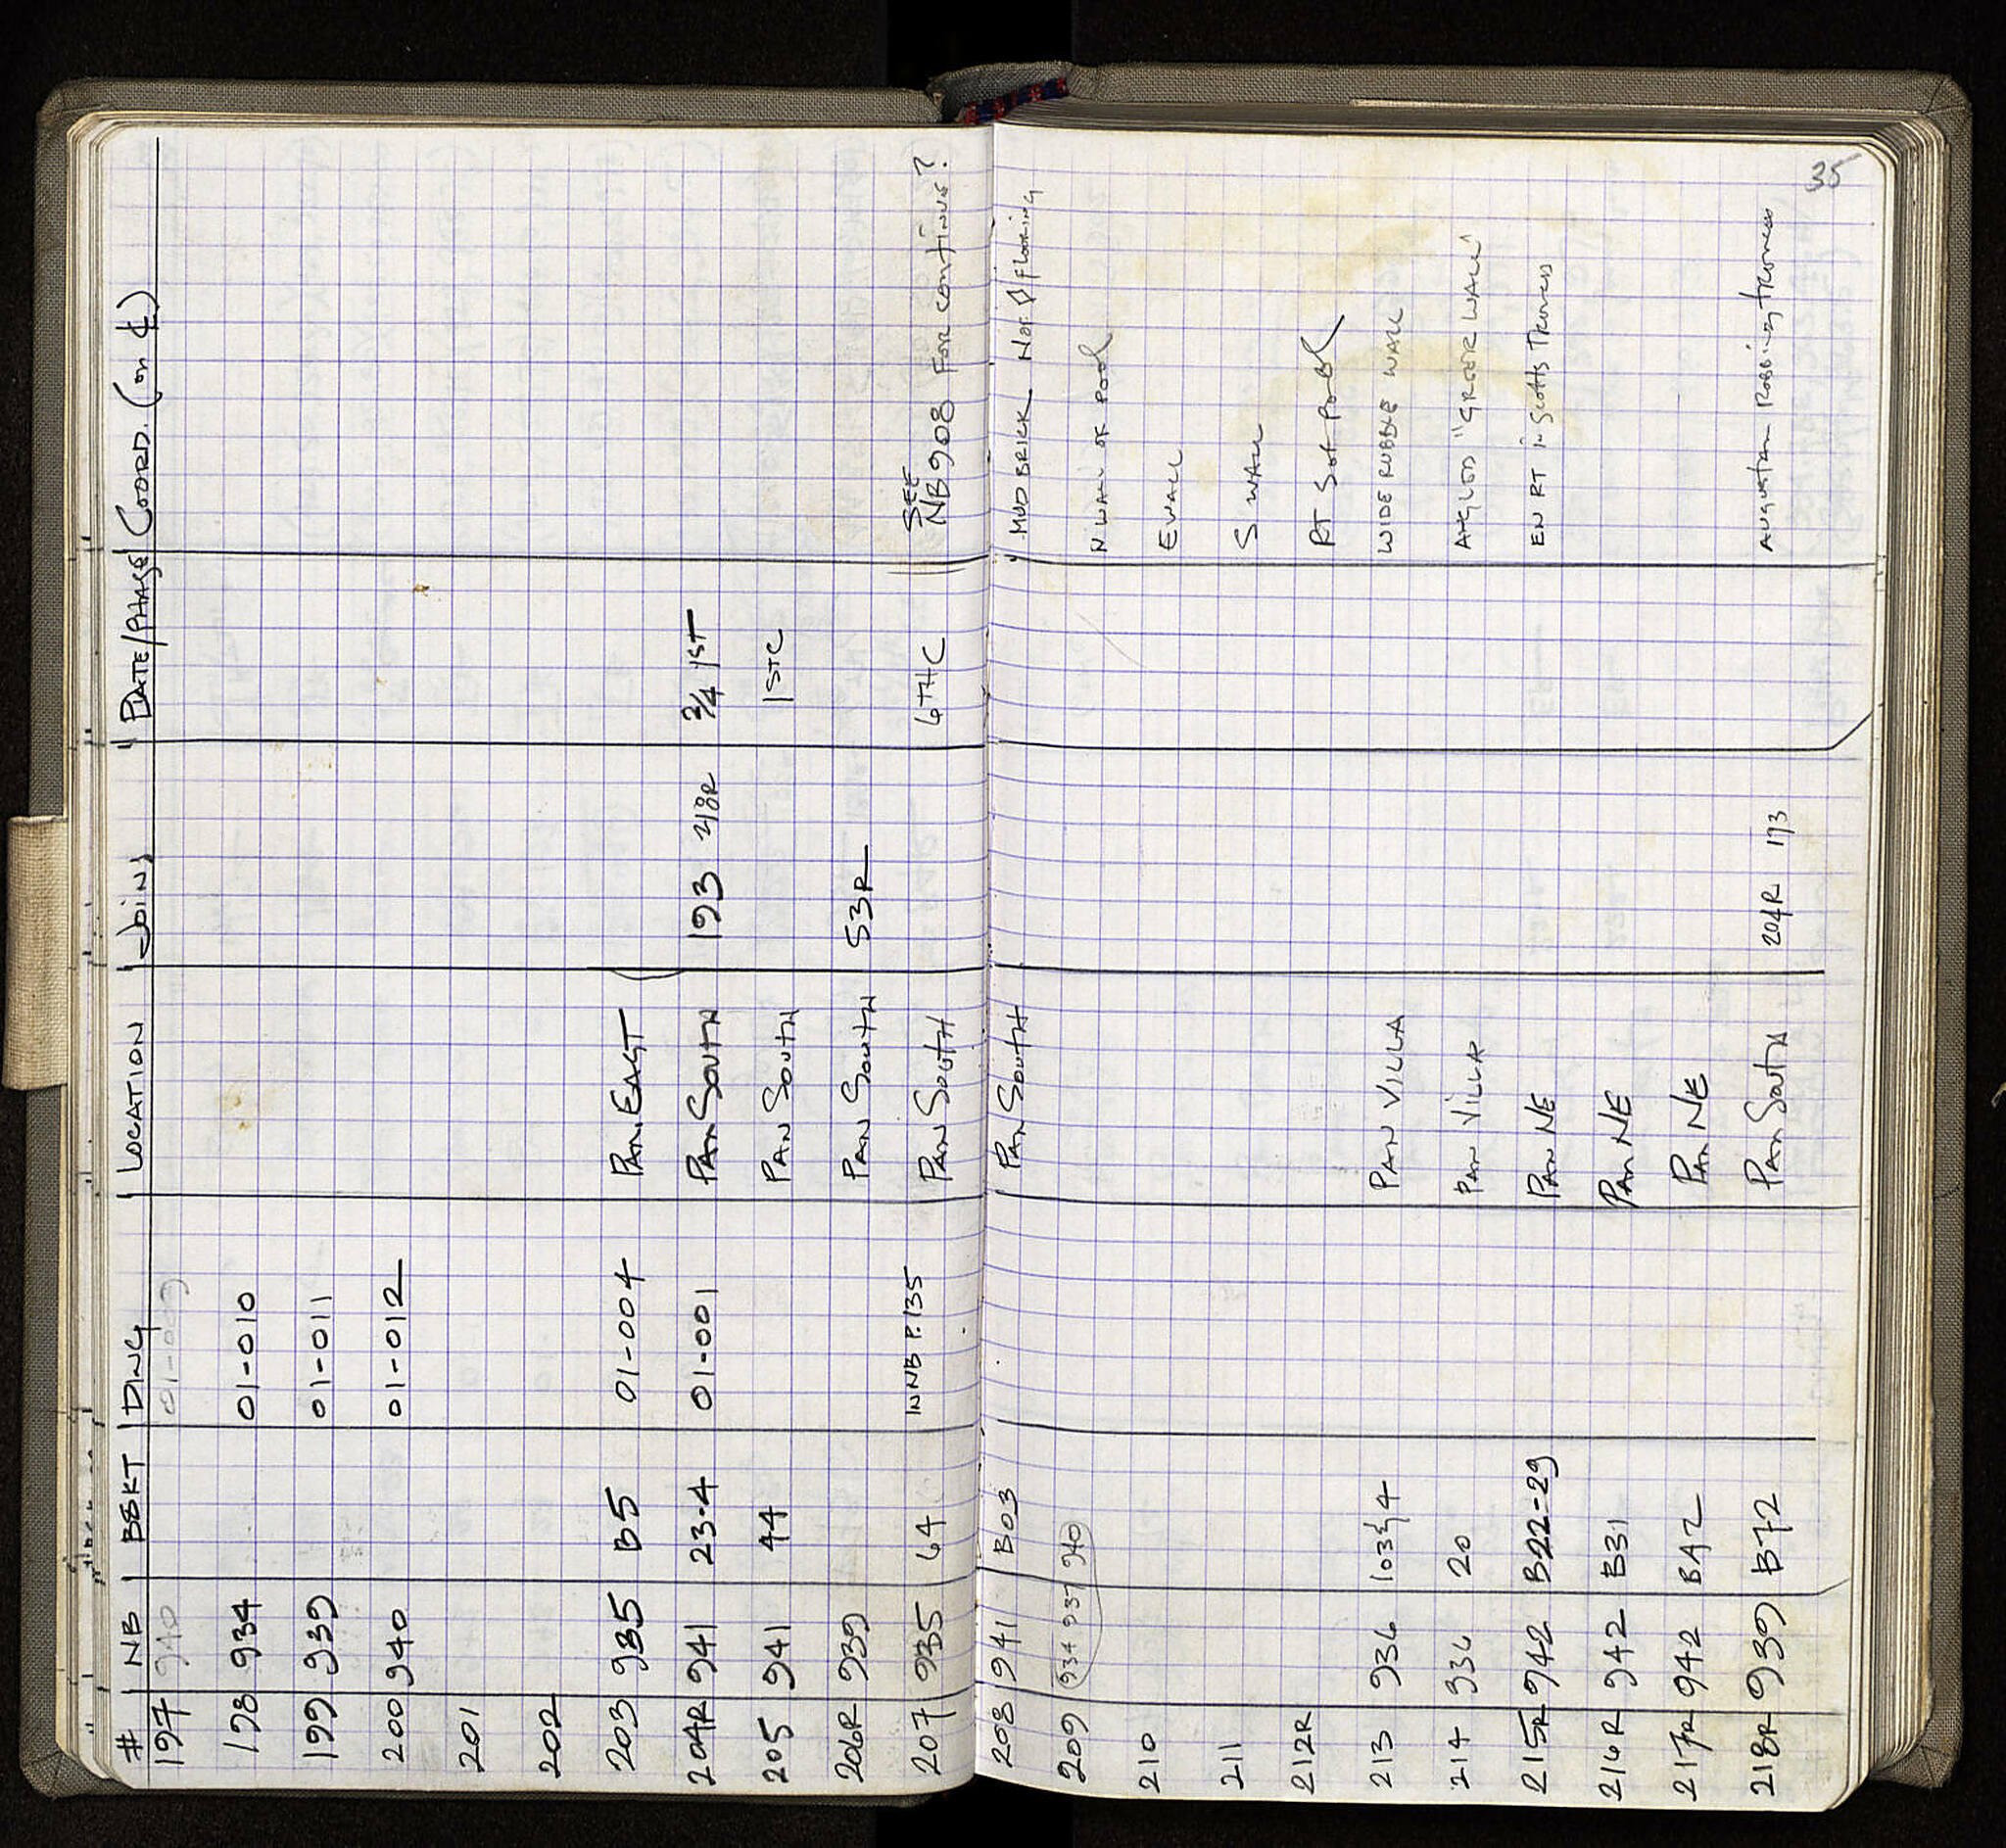 35
# NB BSKT DWG LOCATION JOIN DATE/PHASE COORD. (on ⅊)
197 940 01-009
198 934 01-010
199 939 01-011
200 940 01-012
201
202
203 935 B5 01-004 PAN. EAST
204R 941 23-4 01-001 PAN SOUTH 193 218R 3/4 1ST
205 941 44 PAN SOUTH 1STC
206R 939 PAN SOUTH 53R
207 935 64 IN NB P.135 PAN SOUTH 6THC SEE NB 908 FOR CONTINUS?
208 941 B03 PAN SOUTH MUD BRICK Not flooring
209 934 937 940 N WALL OF POOL
210 E WALL
211 S WALL
212R RT S of Pool
213 936 103&4 PAN VILLA WIDE RUBBLE WALL
214 936 20 PAN VILLA "GREEK WALL"
215R 942 B22-29 PAN NE EN RT in Scotts Trench
216R 942 B31 PAN NE
217R 942 B42 PAN NE
218R 939 B72 PAN South 204R 193 Augustan Robbing trenches